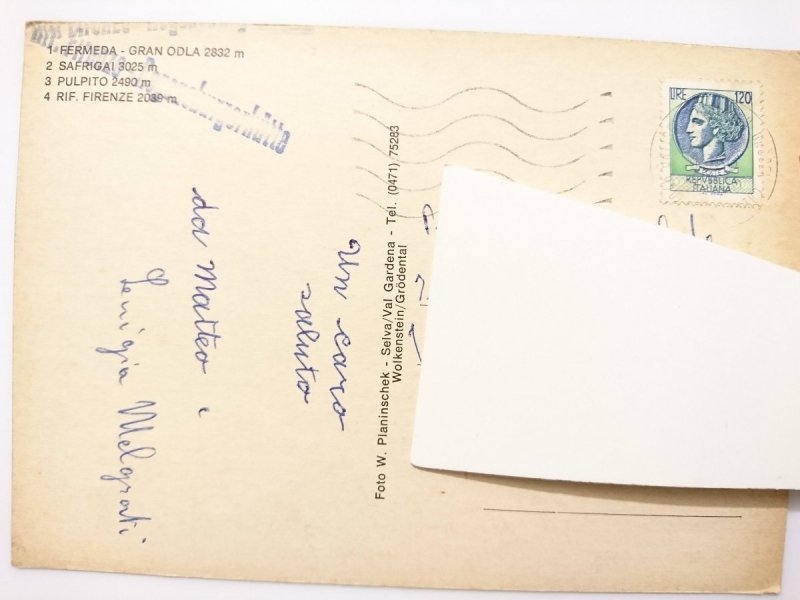 1 FERMEDA - GRAN ODLA 2832 m
2 SAFRIGAI 3025 m
3 PULPITO 2490 m
4 RIF. FIRENZE 2039 m
Rif. Firenze - Regensburgerhütte
un caro
saluto
da Matteo e
Melgrati
Foto W. Planinschek - Selva/Val Gardena - Tel. (0471) 75283
Wolkenstein/Grödental
LIRE 120
REPVBBLICA
ITALIANA